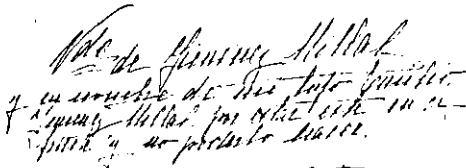 Vda de Gimenez Millas
y en nombre de mi hijo Emilio
Gimenez Millas por estar este en
y no poderlo hacer.